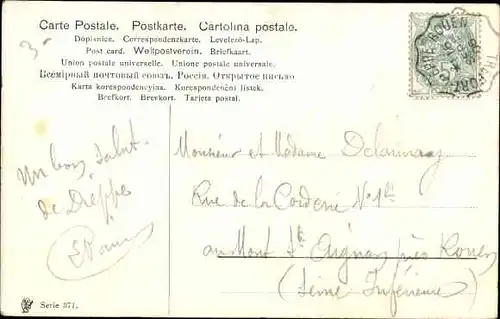 3-
Carte Postale. Postkarte. Cartolina postale.
Dopisnice. Correspondenzkarte. Levelező-Lap.
Post card. Weltpostverein. Briefkaart.
Union postale universelle. Unione postale universale.
Всемірный почтовый союзъ. Россія. Открытое письмо
Karta korespondencyjna. Korespondenční lístek.
Brefkort. Brevkort. Tarjeta postal.
ROUEN
Un bon salut
de Dieppe
Monsieur et Madame Delaunay
Rue de la Corderie N°1
au Mont St Aignan près Rouen
(Seine Inférieure)
Serie 371.